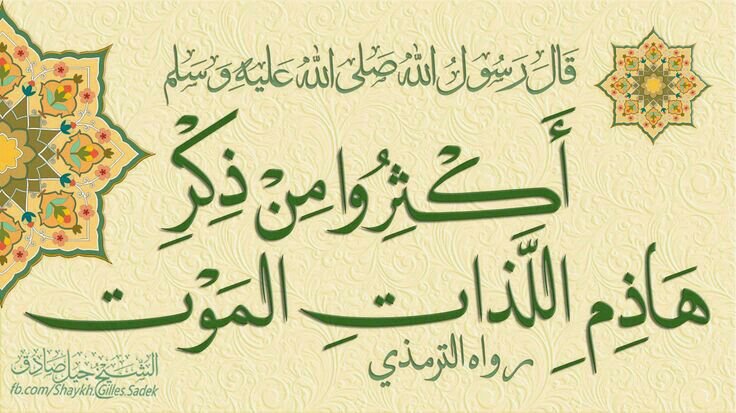 قَالَ رَسُولُ اللهُ صَلى اللهُ عَليهِ وَسَلم
أَكْثِرُوا مِنْ ذِكْرِ
هَاذِمِ اللَّذاتِ المَوْت
رواه الترمذي
الشيخ جيل صادق
fb.com/Shaykh.Gilles.Sadek